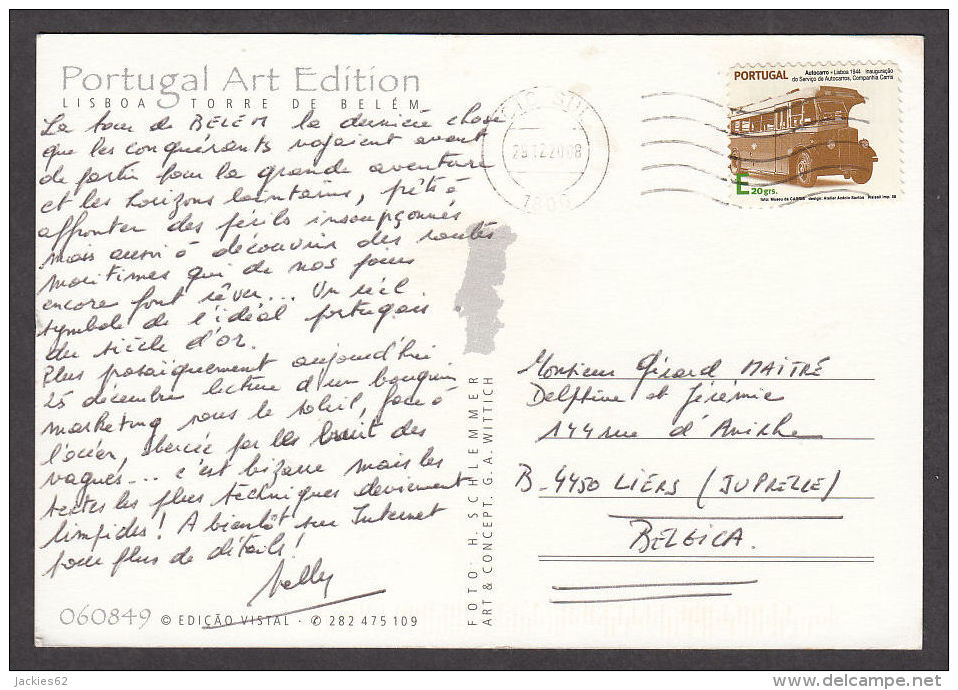 Portugal Art Edition
LISBOA TORRE DE BELÉM
La tour de BELEM la dernière chose
que les conquérants voyaient avant
de partir pour la grande aventure
et les horizons lointains, prêts à
affronter des périls insoupçonnés
mais aussi à découvrir des routes
maritimes qui de nos jours
encore font rêver... Un réel
symbole de l'idéal portugais
du siècle d'or.
Plus prosaïquement aujourd'hui
25 décembre lecture d'un bouquin
marketing sous le soleil, face à
l'océan, bercée par les bruit des
vagues... c'est bizarre mais les
textes les plus techniques deviennent
limpides! A bientôt sur Internet
pour plus de détails!
Nelly
060849 © EDIÇÃO VISTAL · ✆ 282 475 109
FOTO: H. SCHLEMMER
ART & CONCEPT. G.A. WITTICH
29 12 2008
1800
PORTUGAL
Autocarro - Lisboa 1944 Inauguração
do Serviço de Autocarros, Companhia Carris
E 20 grs.
foto: Museu da CARRIS design: Atelier Acácio Santos
Monsieur Gérard MAITRÉ
Delphine et Jérémie
144 rue d'
B-4450 LIERS (JUPRELLE)
BELGICA.
jackies62
Delcampe.net